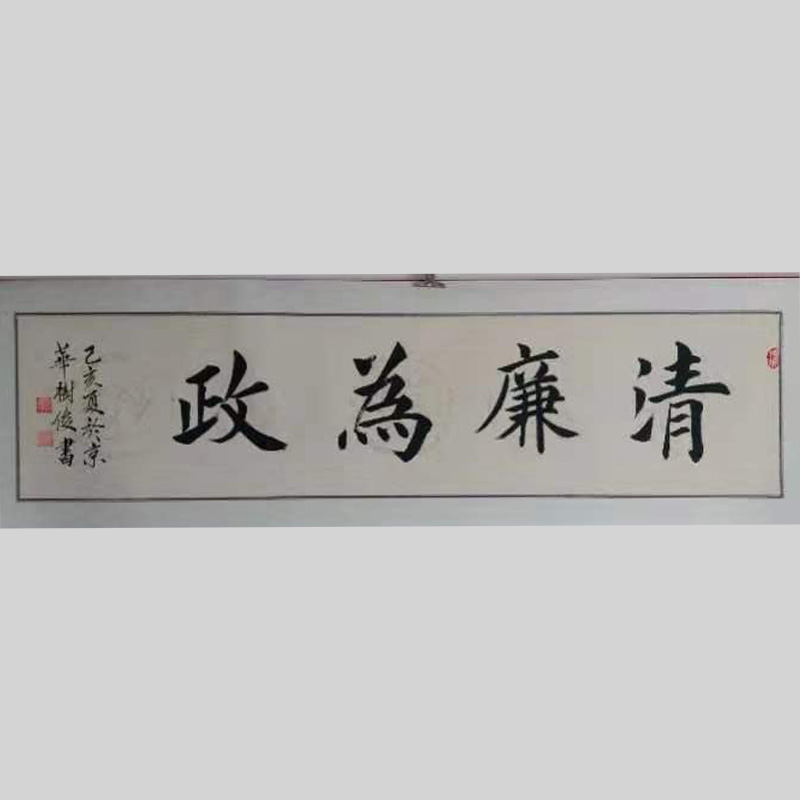 清廉為政
己亥夏於京
華樹俊書